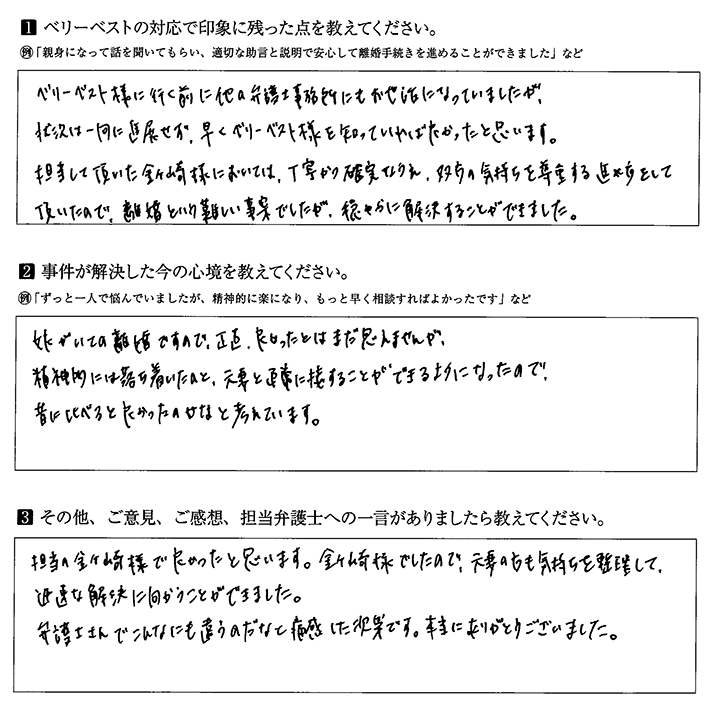 1 ベリーベストの対応で印象に残った点を教えてください。
例「親身になって話を聞いてもらい、適切な助言と説明で安心して離婚手続きを進めることができました」など
ベリーベスト様に行く前に他の弁護士事務所にもお世話になっていましたが、
状況は一向に進展せず、早くベリーベスト様を知っていればよかったと思います。
担当して頂いた金ヶ崎様においては、丁寧かつ確実なうえ、双方の気持ちを尊重する進め方をして
頂いたので、離婚という難しい事案でしたが、穏やかに解決することができました。
2 事件が解決した今の心境を教えてください。
例「ずっと一人で悩んでいましたが、精神的に楽になり、もっと早く相談すればよかったです」など
娘がいての離婚ですので、正直、良かったとはまだ思えませんが、
精神的には落ち着いたのと、元妻と正常に接することができるようになったので、
昔に比べると良かったのかなと考えています。
3 その他、ご意見、ご感想、担当弁護士への一言がありましたら教えてください。
担当の金ヶ崎様で良かったと思います。金ヶ崎様でしたので、元妻の方も気持ちを整理して、
迅速な解決に向かうことができました。
弁護士さんでこんなにも違うのだなと痛感した次第です。本当にありがとうございました。